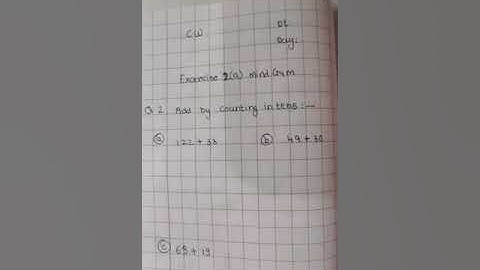 CW Dt
Day:
Exercise 2(a) mind Gym
Q.2 Add by counting in tens :-
(a) 122 + 33 (b) 49 + 30
(c) 69 + 19